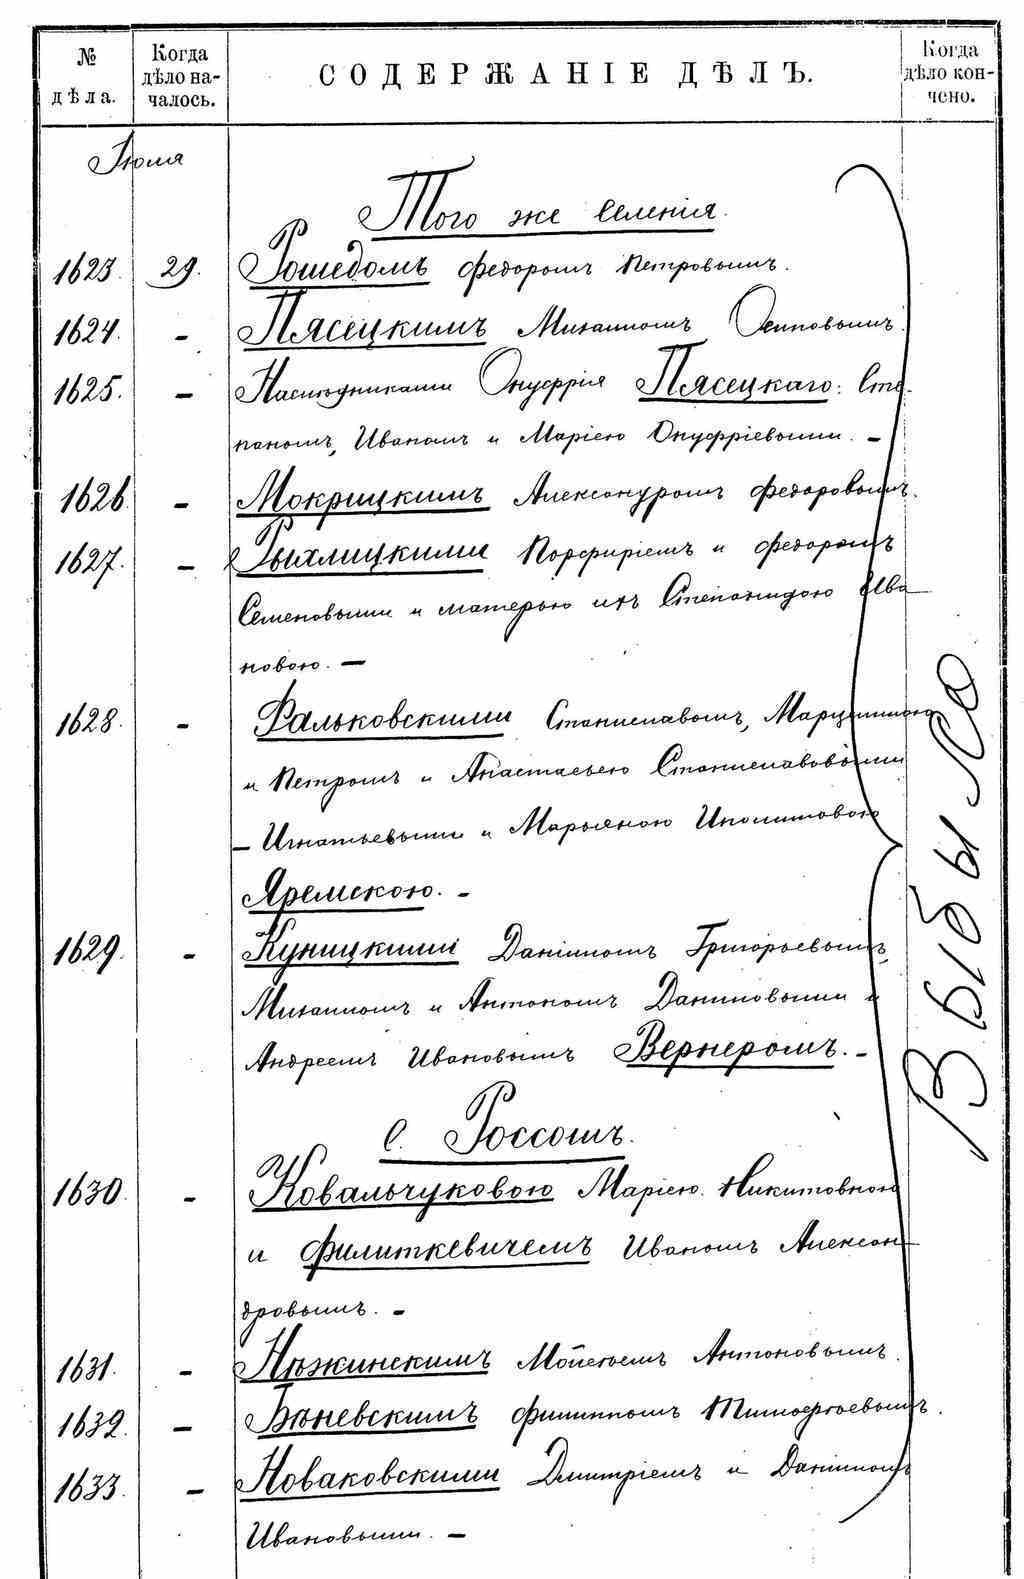 № дѣла.
Когда дѣло началось.
СОДЕРЖАНІЕ ДѢЛЪ.
Когда дѣло кончено.
Іюля
Того же селенія.
1623. 29. Рошедомъ Федоромъ Петровымъ.
1624. - Пясецкимъ Михаиломъ Осиповымъ.
1625. - Наслѣдниками Онуфрія Пясецкаго: Сте-
паномъ, Иваномъ и Маріею Онуфріевыми. -
1626. - Мокрицкимъ Александромъ Федоровымъ.
1627. - Рыхлицкими Порфиріемъ и Федоромъ
Семеновыми и матерью ихъ Степанидою Ива
новою. -
1628. - Фальковскими Станиславомъ,
и Петромъ и Анастасьею Станиславовыми
- Игнатьевыми и Марьяною Иполитовою
Яремскою. -
1629. - Куницкими Даніиломъ Григорьевымъ,
Михаиломъ и Антономъ Даниловыми и
Андреемъ Ивановымъ Вернеромъ. -
с. Россошъ.
1630. - Ковальчуковою Маріею Никитовною
и Филиткевичемъ Иваномъ Алексан
дровымъ. -
1631. - Нѣжинскимъ Моисеемъ Антоновымъ.
1632. - Филиппомъ Тимофеевымъ.
1633. - Новаковскими Дмитріемъ и Даніиломъ
Ивановыми. -
Выбыло